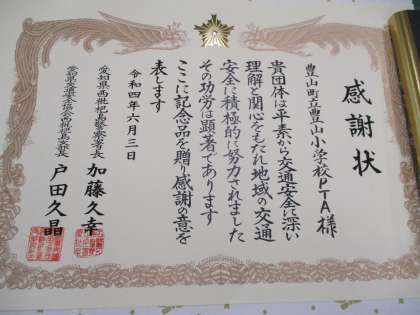 感謝状
豊山町立豊山小学校PTA様
貴団体は平素から交通安全に深い
理解と関心をもたれ地域の交通
安全に積極的に努力されました
その功労は顕著であります
ここに記念品を贈り感謝の意を
表します
令和四年六月三日
愛知県西枇杷島警察署長 加藤久幸
愛知県交通安全協会西枇杷島支部長 戸田久晶